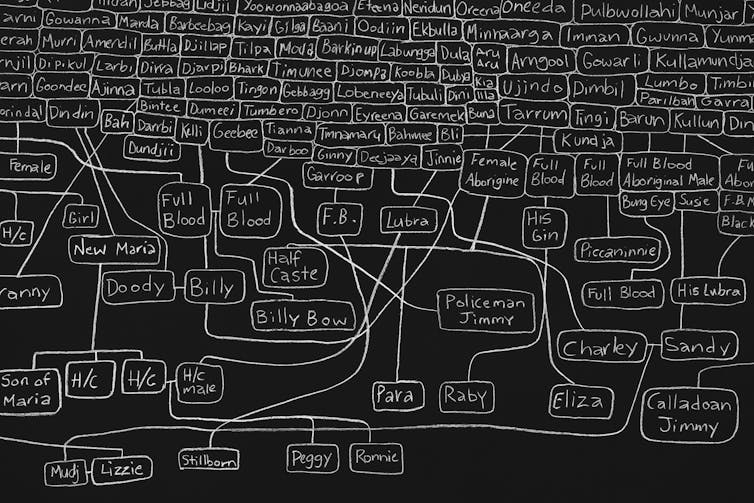 Jebbag Lidji Yoowonnaabagoa Eteena Neridun Oreena Oneeda Pulbwollahi Munjar
Gowanna Marda Barbeebag Kayi Gilga Baani Oodiin Ekbulla Minnaarga Innan Gwunna
Murri Amendil Buttla Djillap Tilpa Moda Barkinup Labungga Dula Aru Aru Arngool Gowarli Kullamundja
Dipikul Larbi Dirra Djarpi Bhark Timunee Djompa Koobla Dubya Kia Ujindo Dimbil Lumbo
Goondee Ajinna Tubla Looloo Tingon Gebbagg Lobeneeya Tubuli Dini Illa Parilbah Garra
Dindin Bah Bintee Dumeei Tumbero Djonn Eyreena Garemek Buna Tarrum Tingi Barun Kullun
Darbi Killi Geebee Tianna Tmnamaru Bahmee Bli Kundja
Dundjii Darboo Ginny Deejaaya Jinnie
Female Garroop Female Aborigine Full Blood Full Blood Full Blood Aboriginal Male
Full Blood Full Blood Bung Eye Susie
H/c Girl F.B. Lubra His Gin Black
New Maria Half Caste Piccaninnie
Doody Billy Full Blood His Lubra
Billy Bow Policeman Jimmy
Charley Sandy
Son of Maria H/c H/c H/c male Para Raby Eliza Calladoan Jimmy
Mudj Lizzie Stillborn Peggy Ronnie